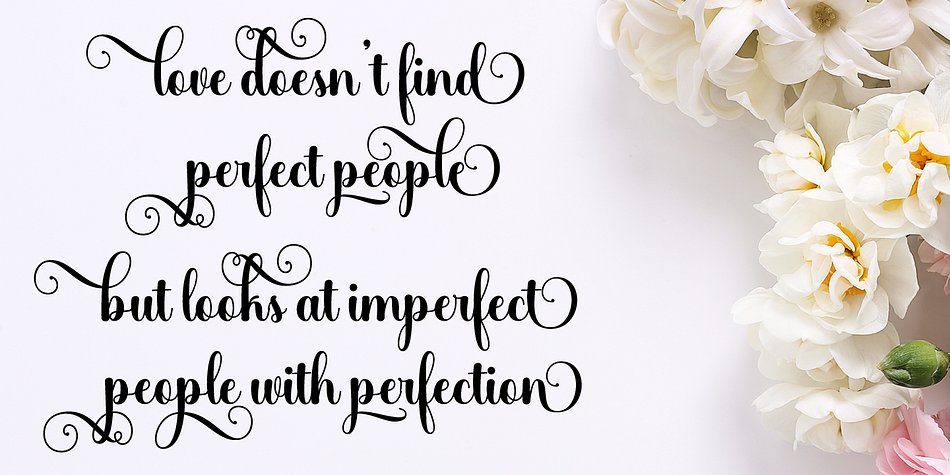 love doesn't find
perfect people
but looks at imperfect
people with perfection